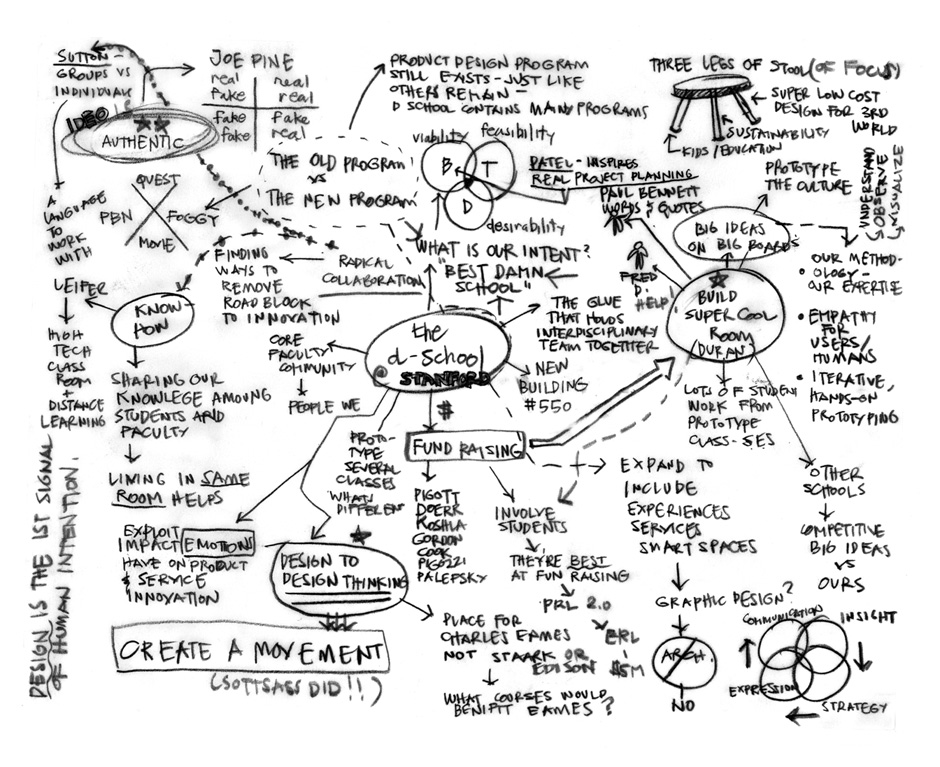 SUTTON -
GROUPS VS
INDIVIDUALS
JOE PINE
real real
fake real
fake fake
fake real
IDEO
AUTHENTIC
A
LANGUAGE
TO
WORK
WITH
QUEST
PBN
FOGGY
MOVIE
THE OLD PROGRAM
VS
THE NEW PROGRAM
PRODUCT DESIGN PROGRAM
STILL EXISTS - JUST LIKE
OTHERS REMAIN -
D SCHOOL CONTAINS MANY PROGRAMS
viability
feasibility
B
T
D
desirability
PATEL - INSPIRES
REAL PROJECT PLANNING
PAUL BENNETT
WORDS & QUOTES
THREE LEGS OF STOOL (OF FOCUS)
SUPER LOW COST
DESIGN FOR 3RD
WORLD
SUSTAINABILITY
KIDS / EDUCATION
PROTOTYPE
THE CULTURE
UNDERSTAND
OBSERVE
VISUALIZE
BIG IDEAS
ON BIG BOARDS
OUR METHOD-
OLOGY -
OUR EXPERTISE
• EMPATHY
FOR
USERS/
HUMANS
• ITERATIVE,
HANDS-ON
PROTOTYPING
FRED
D.
HELP!
BUILD
SUPER COOL
ROOM
(DURAN)
LOTS OF STUDENT
WORK FROM
PROTOTYPE
CLASS-SES
LEIFER
HIGH
TECH
CLASS
ROOM
+
DISTANCE
LEARNING
KNOW
HOW
FINDING
WAYS TO
REMOVE
ROAD BLOCK
TO INNOVATION
RADICAL
COLLABORATION
WHAT IS OUR INTENT?
"BEST DAMN
SCHOOL"
THE GLUE
THAT HOLDS
INTERDISCIPLINARY
TEAM TOGETHER
the
d-school
@ STANFORD
NEW
BUILDING
#550
CORE
FACULTY
COMMUNITY
PEOPLE WE
SHARING OUR
KNOWLEGE AMOUNG
STUDENTS AND
FACULTY
LIVING IN SAME
ROOM HELPS
EXPLOIT
IMPACT EMOTIONS
HAVE ON PRODUCT
& SERVICE
INNOVATION
DESIGN IS THE 1ST SIGNAL
OF HUMAN INTENTION.
PROTO-
TYPE
SEVERAL
CLASSES
WHATS
DIFFERENT
DESIGN TO
DESIGN THINKING
CREATE A MOVEMENT
(SOTTSASS DID!!)
$
FUND RAISING
PIGOTT
DOERR
KOSHLA
GORDON
COOK
PIGOZZI
PALEFSKY
INVOLVE
STUDENTS
THEY'RE BEST
AT FUN RAISING
PRL 2.0
ERL
$5M
PLACE FOR
CHARLES EAMES
NOT STAARK OR
EDISON
WHAT COURSES WOULD
BENIFIT EAMES?
EXPAND TO
INCLUDE
EXPERIENCES
SERVICES
SMART SPACES
GRAPHIC DESIGN?
ARCH.
NO
OTHER
SCHOOLS
COMPETITIVE
BIG IDEAS
VS
OURS
COMMUNICATION
INSIGHT
EXPRESSION
STRATEGY